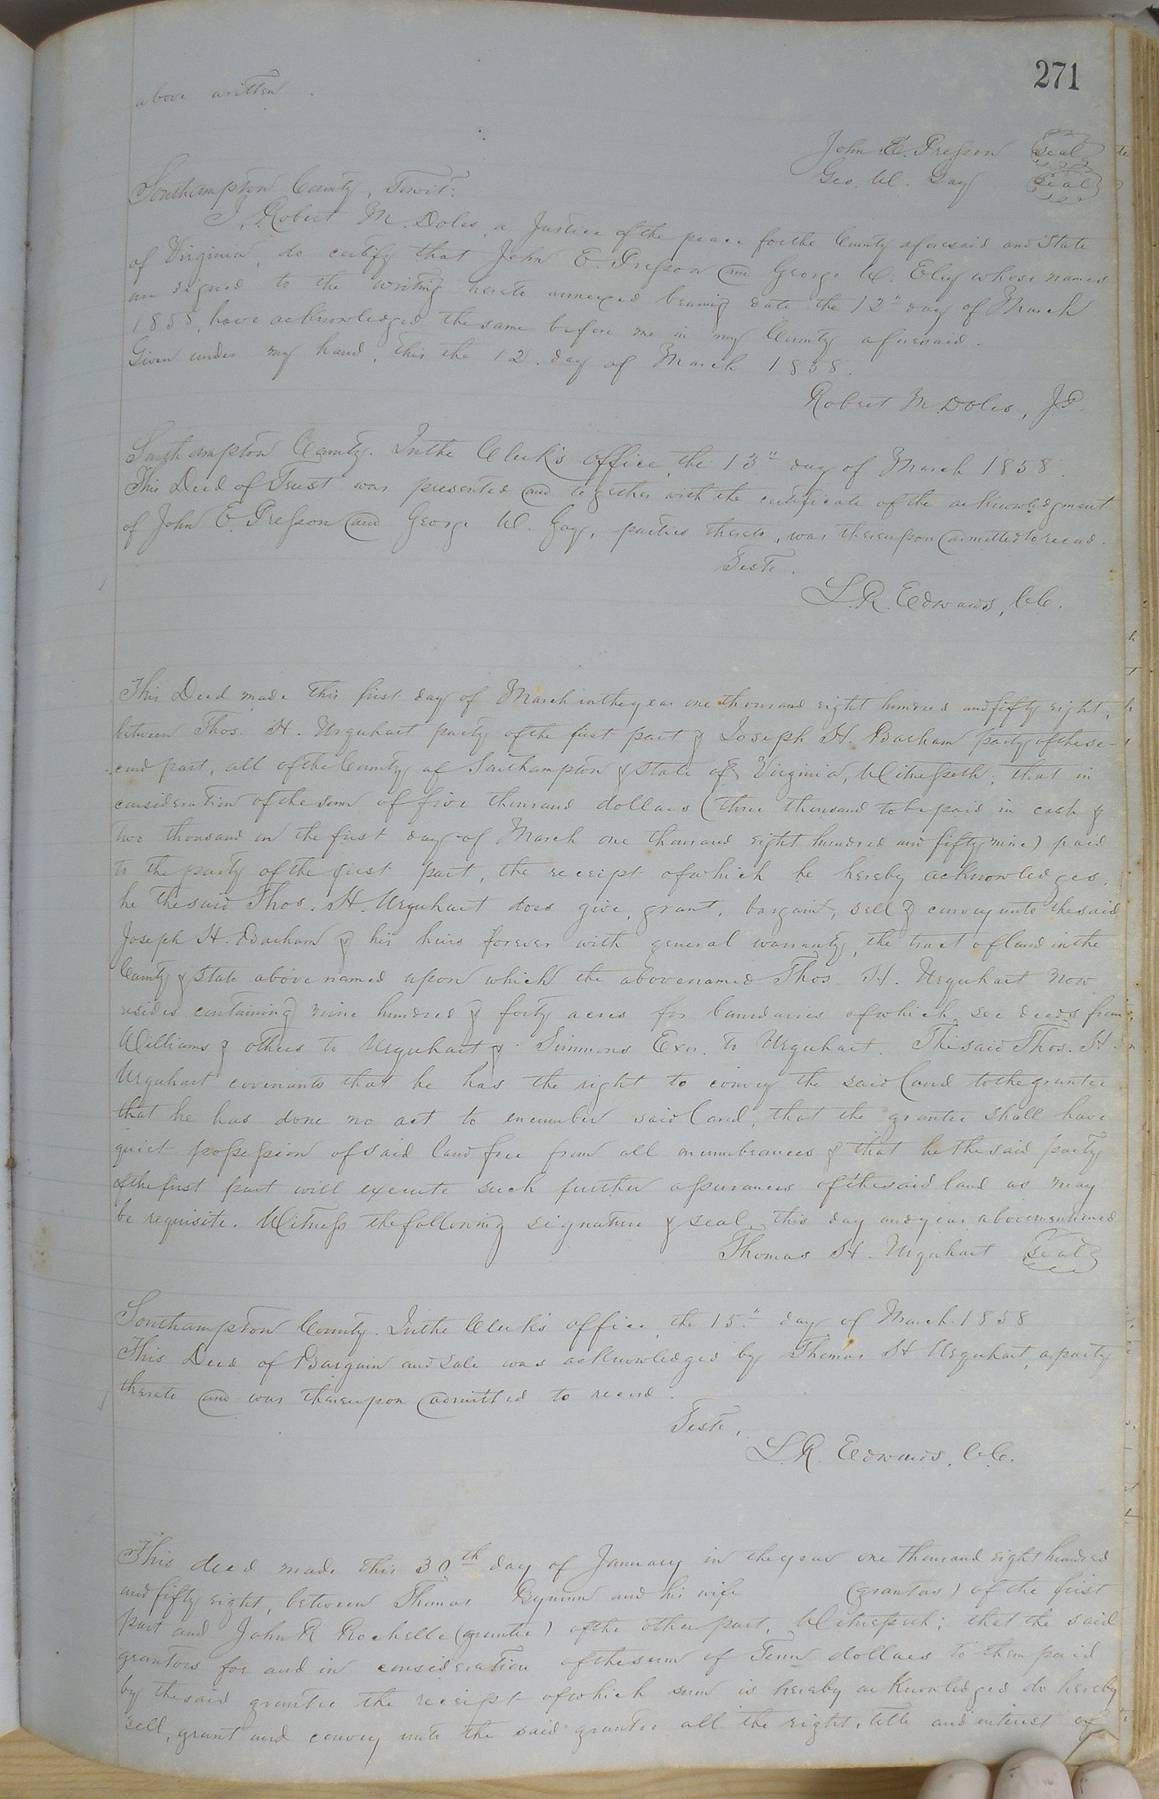 271
above written.
John E. Presson Seal
Geo. W. Gay Seal
Southampton County, Towit:
I, Robert M. Doles, a Justice of the peace for the County aforesaid and State
of Virginia, do certify that John E. Presson and George W. Eley whose names
are signed to the writing hereto annexed bearing date the 12" day of March
1858, have acknowledged the same before me in my County aforesaid.
Given under my hand, this the 12. day of March 1858.
Robert M. Doles, J.P.
Southampton County. In the Clerk's office, the 13" day of March 1858.
This Deed of Trust was presented and together with the certificate of the acknowledgment
of John E. Presson and George W. Gay, parties thereto, was thereupon admitted to record.
Teste.
L. R. Edwards, C.C.
This Deed made this first day of March in the year one thousand eight hundred and fifty eight,
between Thos. H. Urquhart party of the first part & Joseph H. Barham party of the se-
cond part, all of the County of Southampton & State of Virginia, Witnesseth, that in
consideration of the sum of five thousand dollars (three thousand to be paid in cash &
two thousand on the first day of March one thousand eight hundred and fifty nine) paid
to the party of the first part, the receipt of which he hereby acknowledges,
he the said Thos. H. Urquhart does give, grant, bargain, sell & convey unto the said
Joseph H. Barham & his heirs forever with general warranty, the tract of land in the
County & State above named upon which the above named Thos. H. Urquhart now
resides containing nine hundred & forty acres for boundaries of which see deeds from
Williams & others to Urquhart & Simmons Exor. to Urquhart. The said Thos. H.
Urquhart covenants that he has the right to convey the said land to the grantee
that he has done no act to encumber said land, that the grantee shall have
quiet possession of said land free from all encumbrances & that he the said party
of the first part will execute such further assurances of the said land as may
be requisite. Witness the following signature & seal, this day and year abovementioned
Thomas H. Urquhart Seal
Southampton County. In the Clerk's office, the 15" day of March 1858
This Deed of Bargain and Sale was acknowledged by Thomas H Urquhart, a party
thereto and was thereupon admitted to record.
Teste,
L. R. Edwards, C.C.
This deed made this 30th day of January in the year one thousand eight hundred
and fifty eight, between Thomas Bynum and his wife (grantors) of the first
part and John R Rochelle (grantee) of the other part, Witnesseth; that the said
grantors for and in consideration of the sum of Tenn dollars to them paid
by the said grantee the receipt of which sum is hereby acknowledged do hereby
sell, grant and convey unto the said grantee all the right, title and interest of